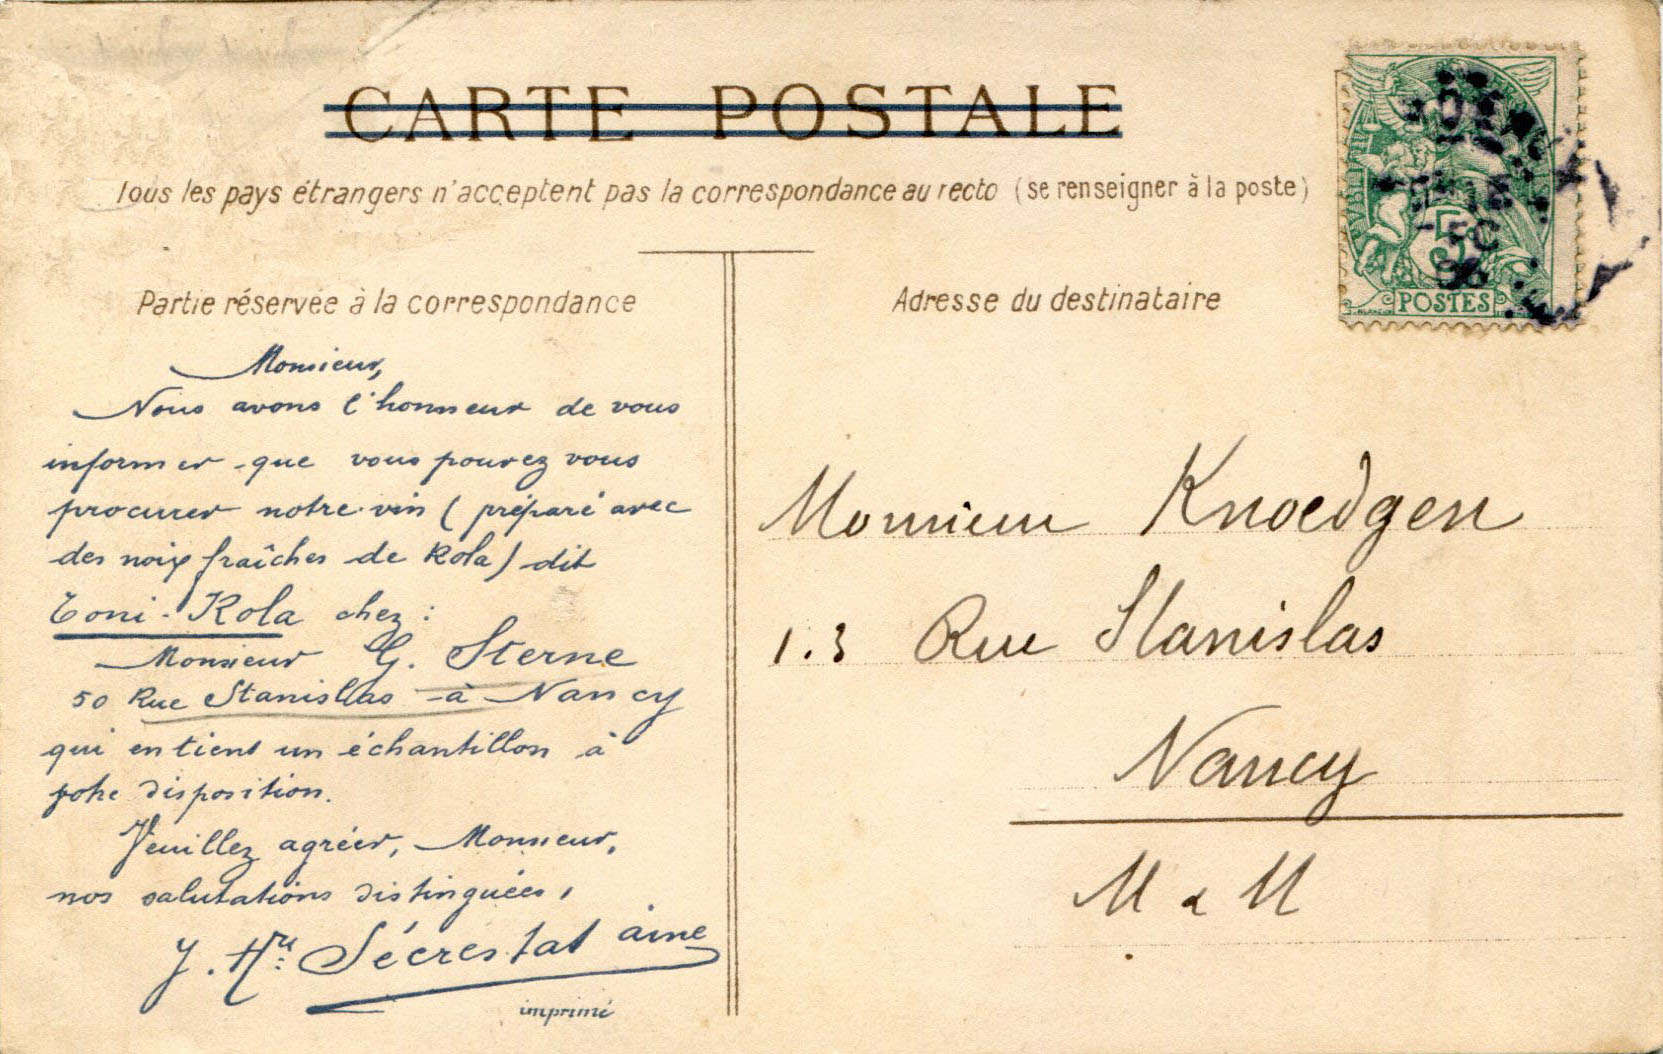 CARTE POSTALE
Tous les pays étrangers n'acceptent pas la correspondance au recto (se renseigner à la poste)
Partie réservée à la correspondance
Monsieur,
Nous avons l'honneur de vous
informer que vous pouvez vous
procurer notre vin (préparé avec
des noix fraîches de Kola) dit
Toni-Kola chez :
Monsieur G. Sterne
50 Rue Stanislas à Nancy
qui en tient un échantillon à
votre disposition.
Veuillez agréer, Monsieur,
nos salutations distinguées,
J. Hri: Sécrestat aîné
imprimé
Adresse du destinataire
Monsieur Knoedgen
13 Rue Stanislas
Nancy
M & M
5c
POSTES